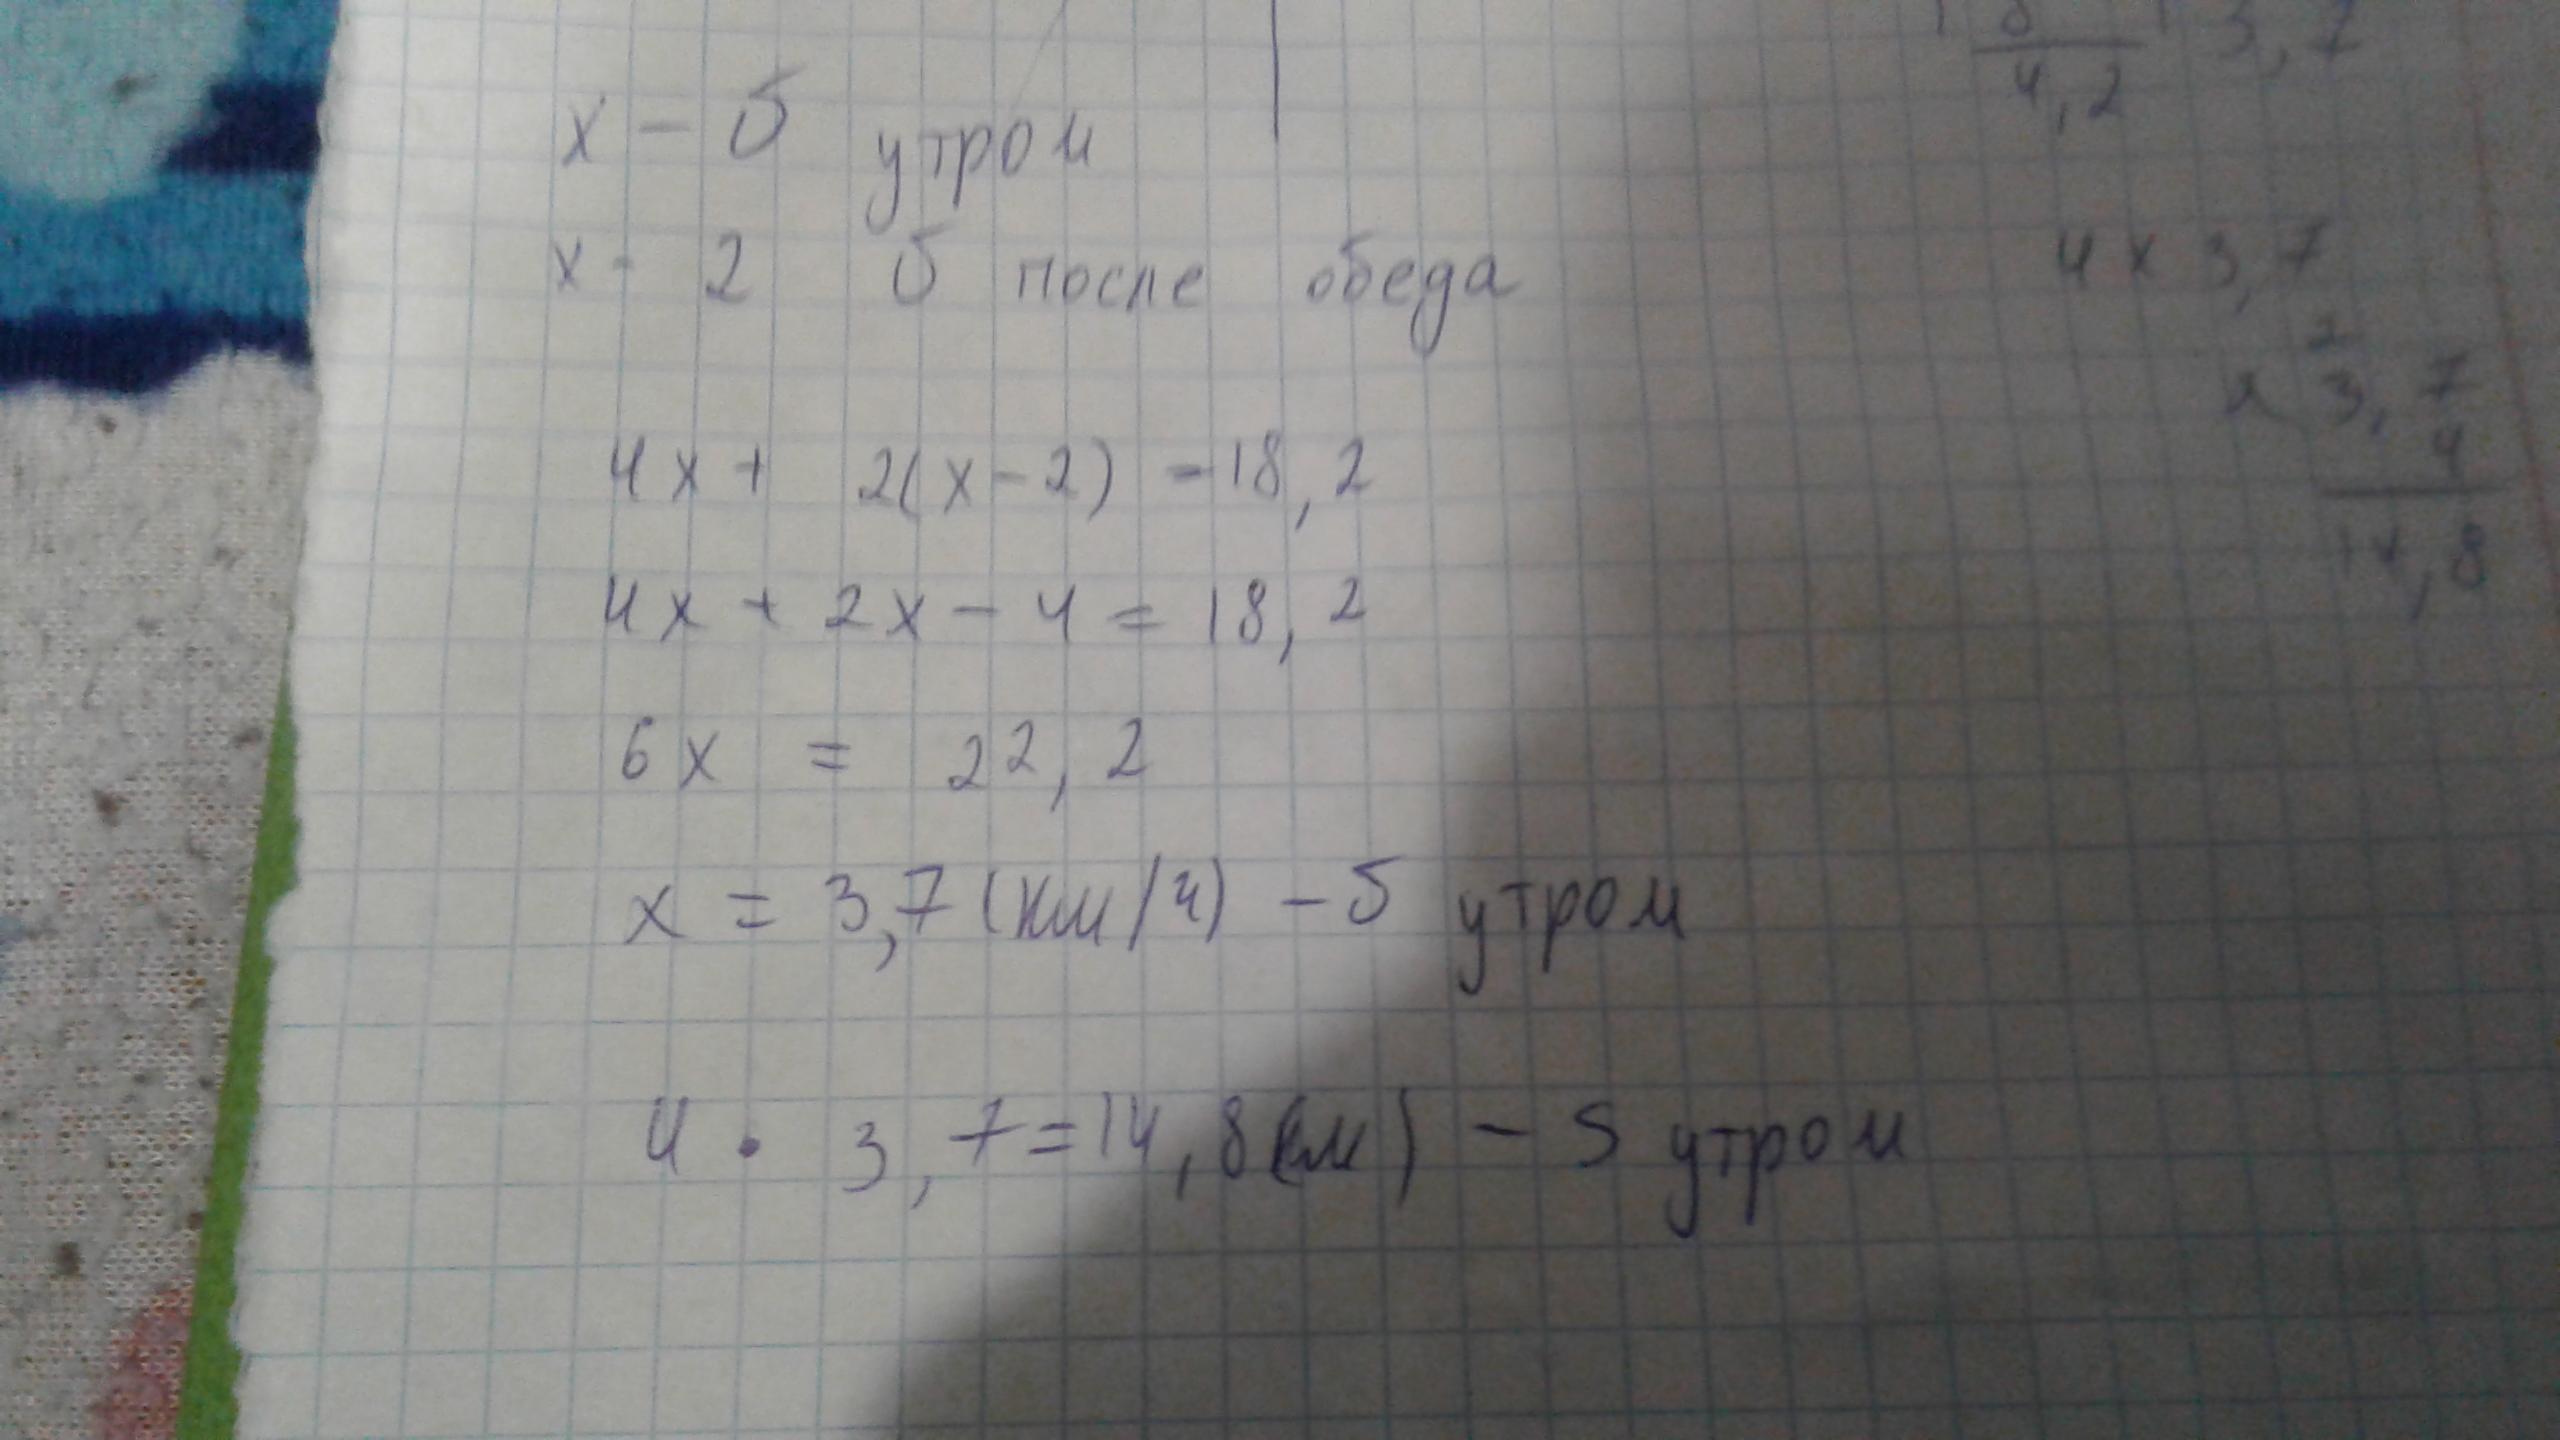 x - υ утром
x - 2 υ после обеда
4x + 2(x-2) = 18,2
4x + 2x - 4 = 18,2
6x = 22,2
x = 3,7 (км/ч) - υ утром
4 • 3,7 = 14,8 (км) - S утром
8
3,7
4,2
4 x 3,7
2
x 3,7
4
14,8